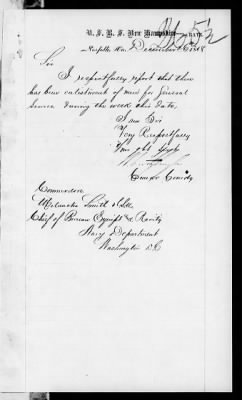 U.S.R.S. New Hampshire
Norfolk Va. December 1868
Sir
I respectfully report that there
has been enlistment of men for General
Service during the week this date,
I am Sir
Very Respectfully
Your obt Servt
Commodore
Melancton Smith U.S.N.
Chief of Bureau Equipt & Recruitg
Navy Department
Washington D.C.